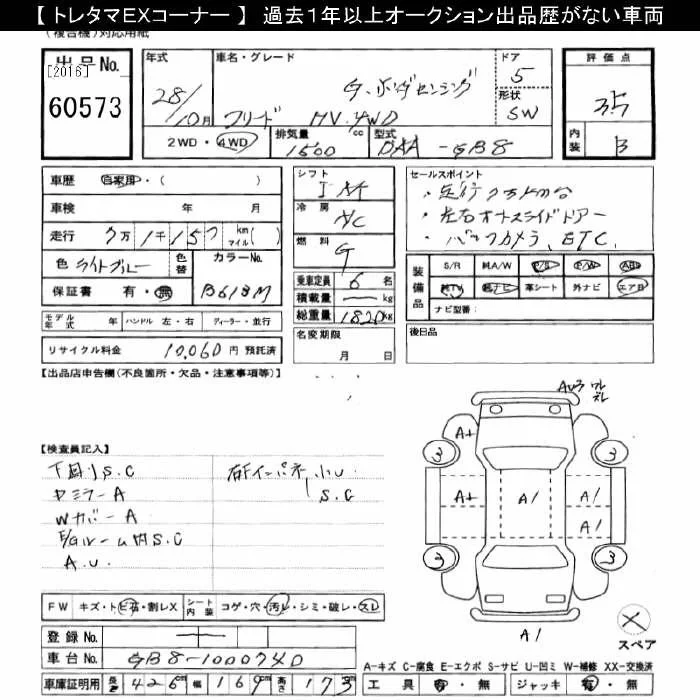 【 トレタマEXコーナー 】 過去1年以上オークション出品歴がない車両
(複合機)対応用紙
出品No.
[2016]
60573
年式
28/10月
車名・グレード
フリード HV.4WD
ドア
5
形状
SW
評価点
3.5
内装
B
2WD・4WD
排気量
1500 cc
型式
DAA-GB8
車歴 自家用・( )
車検 年 月
走行 7万1千157 km マイル( )
色 ライトブルー
色替
カラーNo.
B618M
保証書 有・無
モデル年式 年 ハンドル 左・右 ディーラー・並行
リサイクル料金 10,060 円 預託済
シフト
IAT
冷房
AC
燃料
G
乗車定員 6 名
積載量 ー kg
総重量 1820 kg
名変期限
月 日
セールスポイント
・走行7万km台
・左右オートスライドドアー
・バックカメラ、ETC.
装備品
S/R 純A/W P/S P/W ABS
純TV 純ナビ 革シート 外ナビ エアB
ナビ型番:
後日品
【出品店申告欄(不良箇所・欠品・注意事項等)】
【検査員記入】
下回りS.C
ドミラーA
WカバーA
E/Gルーム内S.C
A.U.
小U
S.C
FW キズ・トビ石・割レX
シート内装 コゲ・穴・汚レ・シミ・破レ・スレ
登録No. ー
車台No. GB8-1000740
車庫証明用 長さ 426cm 幅 169cm 高さ 173
A+
3
3
A+
A1
A1
A1
3
3
A1
スペア
A-キズ C-腐食 E-エクボ S-サビ U-凹ミ W-補修 XX-交換済
工具 有・無 ジャッキ 有・無